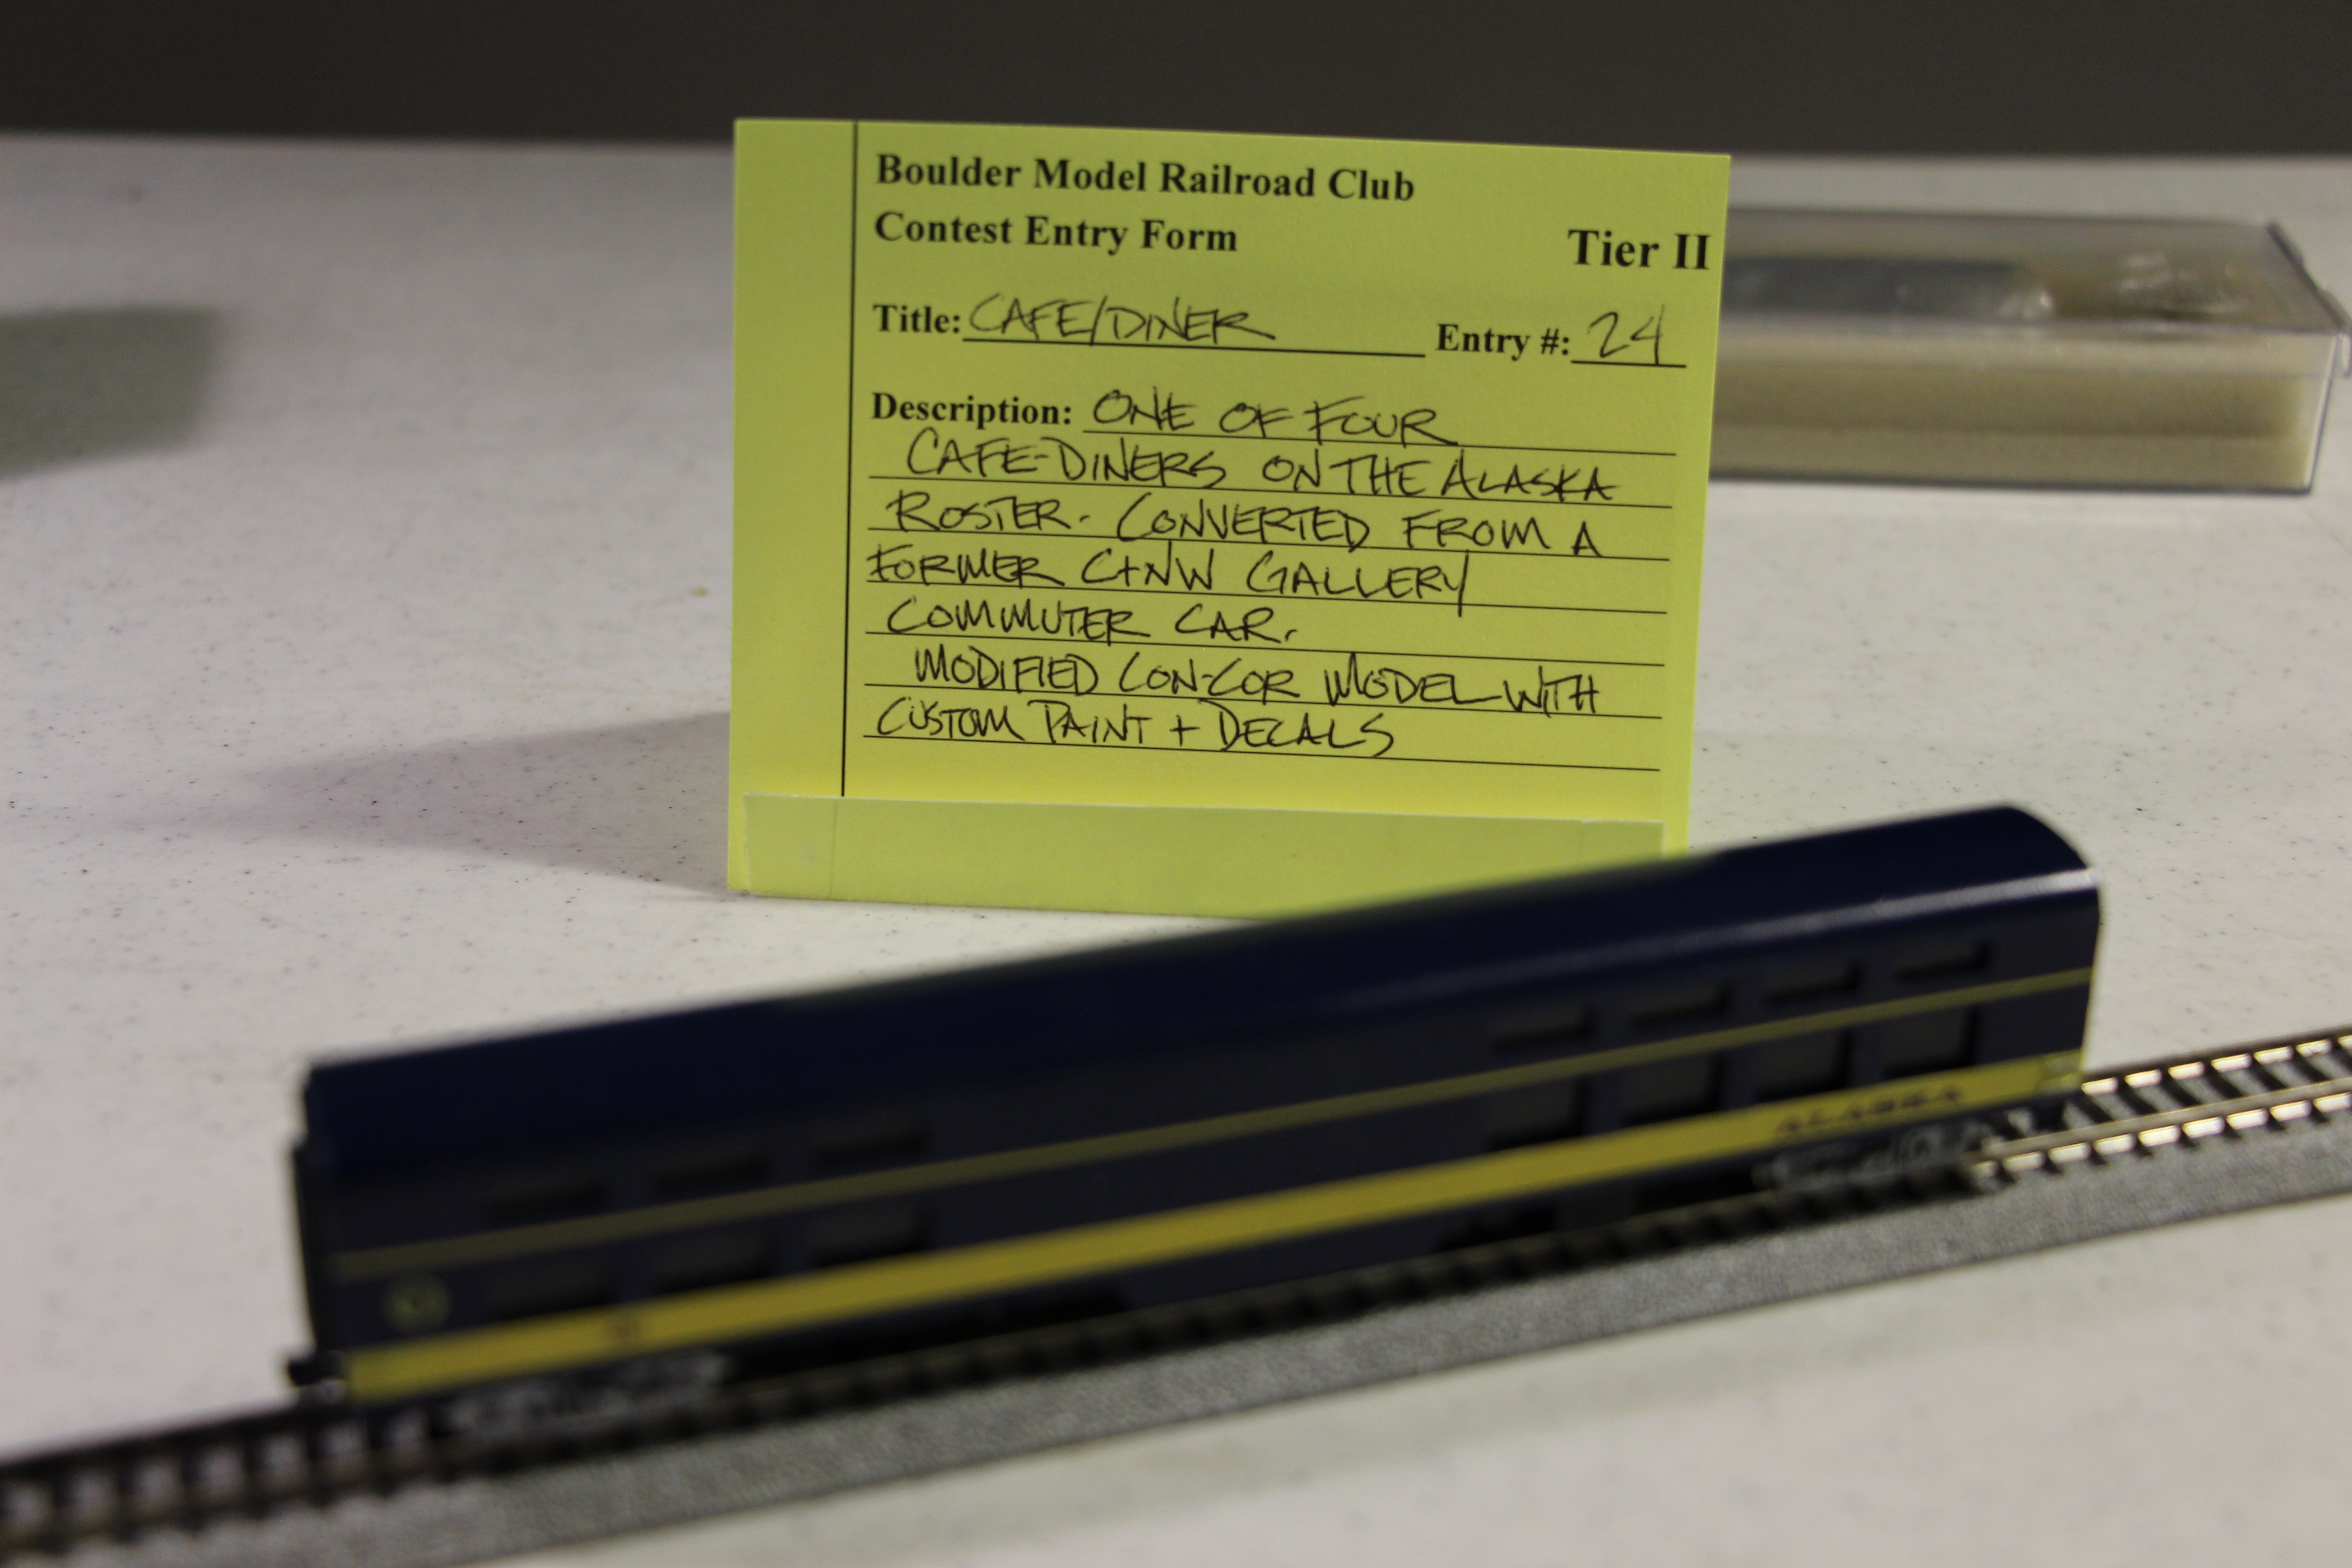 Boulder Model Railroad Club
Contest Entry Form
Tier II
Title: CAFE/DINER Entry #: 24
Description: ONE OF FOUR
CAFE-DINERS ON THE ALASKA
ROSTER. CONVERTED FROM A
FORMER C+NW GALLERY
COMMUTER CAR.
MODIFIED CON-COR MODEL WITH
CUSTOM PAINT + DECALS
ALASKA